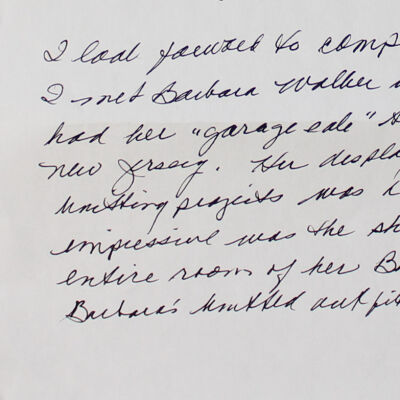 I look forward to comp
I met Barbara Walker
had her "garage sale"
New Jersey. Her displa
knitting projects was i
impressive was the sh
entire room of her B
Barbara's knitted outfi